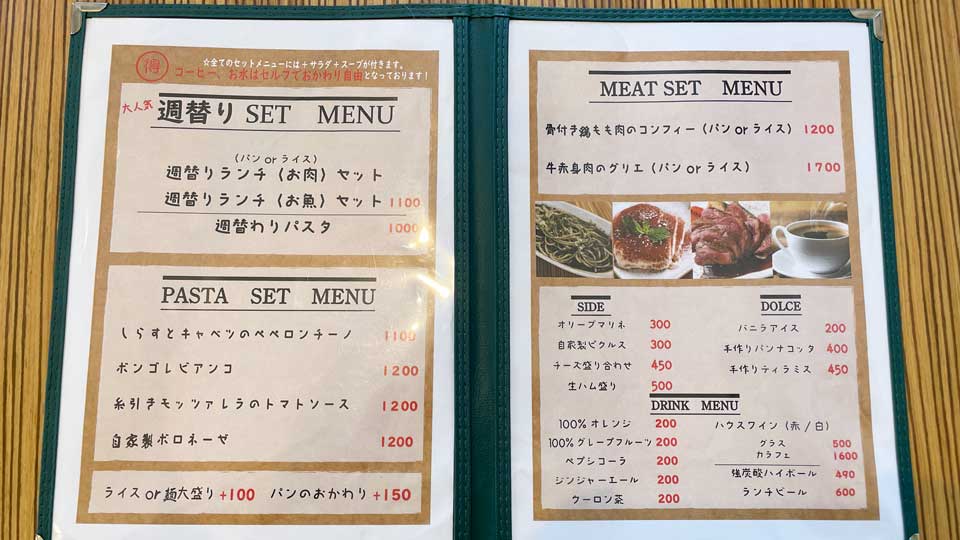 得
☆全てのセットメニューには+サラダ+スープが付きます。
コーヒー、お水はセルフでおかわり自由となっております!
大人気
週替り SET MENU
(パン or ライス)
週替りランチ(お肉)セット
週替りランチ(お魚)セット 1100
週替わりパスタ 1000
PASTA SET MENU
しらすとキャベツのペペロンチーノ 1100
ボンゴレビアンコ 1200
糸引きモッツァレラのトマトソース 1200
自家製ボロネーゼ 1200
ライス or 麺大盛り +100 パンのおかわり +150
MEAT SET MENU
骨付き鶏もも肉のコンフィー(パン or ライス) 1200
牛赤身肉のグリエ(パン or ライス) 1700
SIDE
オリーブマリネ 300
自家製ピクルス 300
チーズ盛り合わせ 450
生ハム盛り 500
DOLCE
バニラアイス 200
手作りパンナコッタ 400
手作りティラミス 450
DRINK MENU
100% オレンジ 200
100% グレープフルーツ 200
ペプシコーラ 200
ジンジャーエール 200
ウーロン茶 200
ハウスワイン(赤/白)
グラス 500
カラフェ 1600
強炭酸ハイボール 490
ランチビール 600